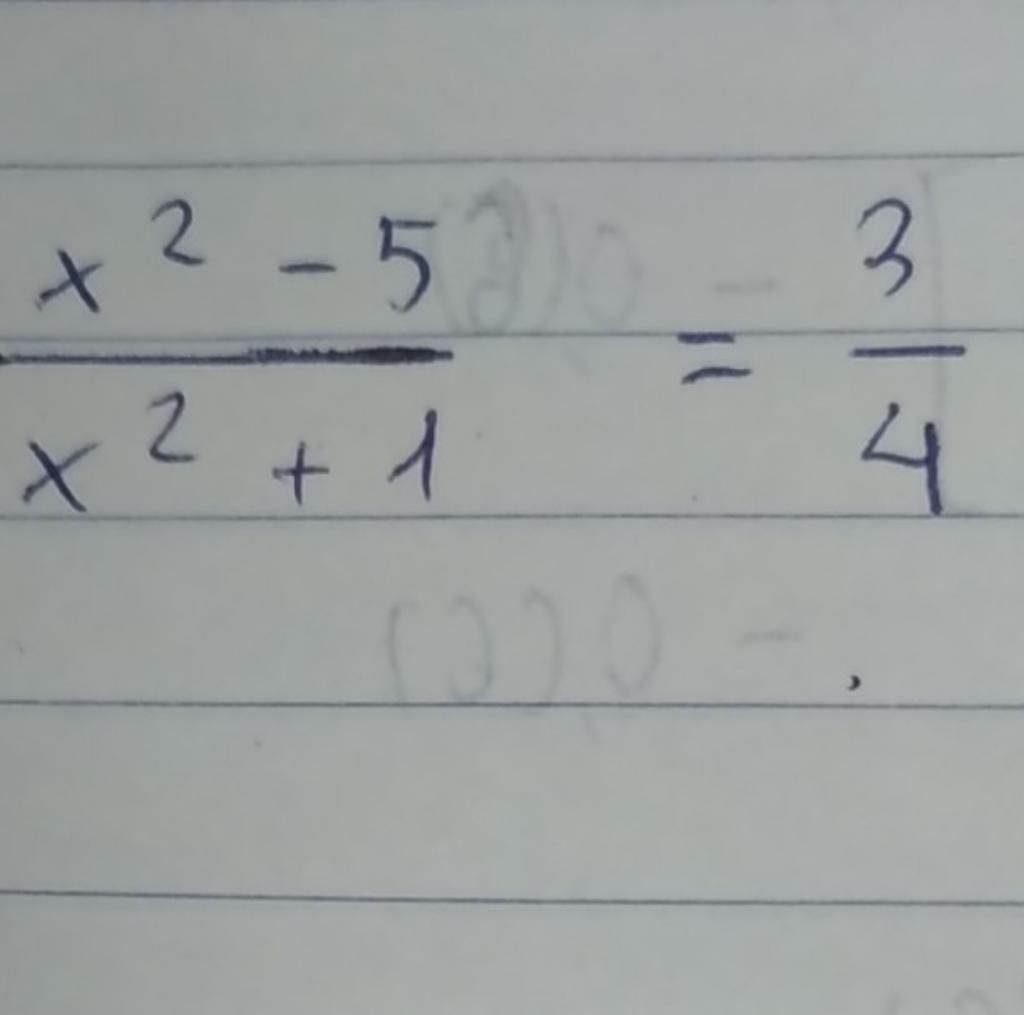 x² - 5 / x² + 1 = 3 / 4